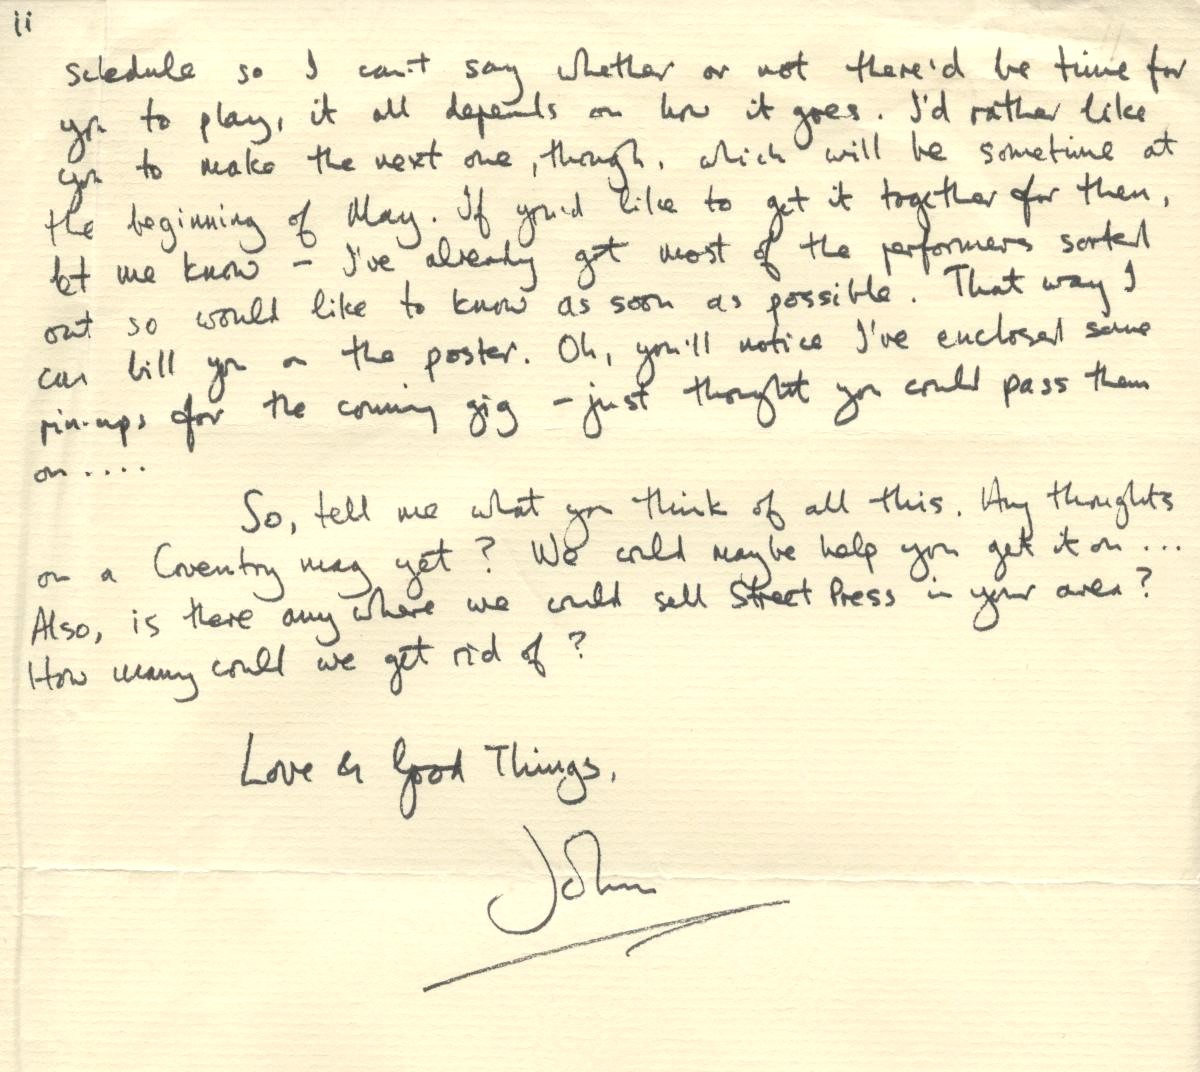 ii
schedule so I can't say whether or not there'd be time for
you to play, it all depends on how it goes. I'd rather like
you to make the next one, though, which will be sometime at
the beginning of May. If you'd like to get it together for then,
let me know – I've already got most of the performers sorted
out so would like to know as soon as possible. That way I
can bill you on the poster. Oh, you'll notice I've enclosed some
pin-ups for the coming gig – just thought you could pass them
on ....
So, tell me what you think of all this. Any thoughts
on a Coventry mag yet? We could maybe help you get it on ...
Also, is there anywhere we could sell Street Press in your area?
How many could we get rid of?
Love & Good Things,
John